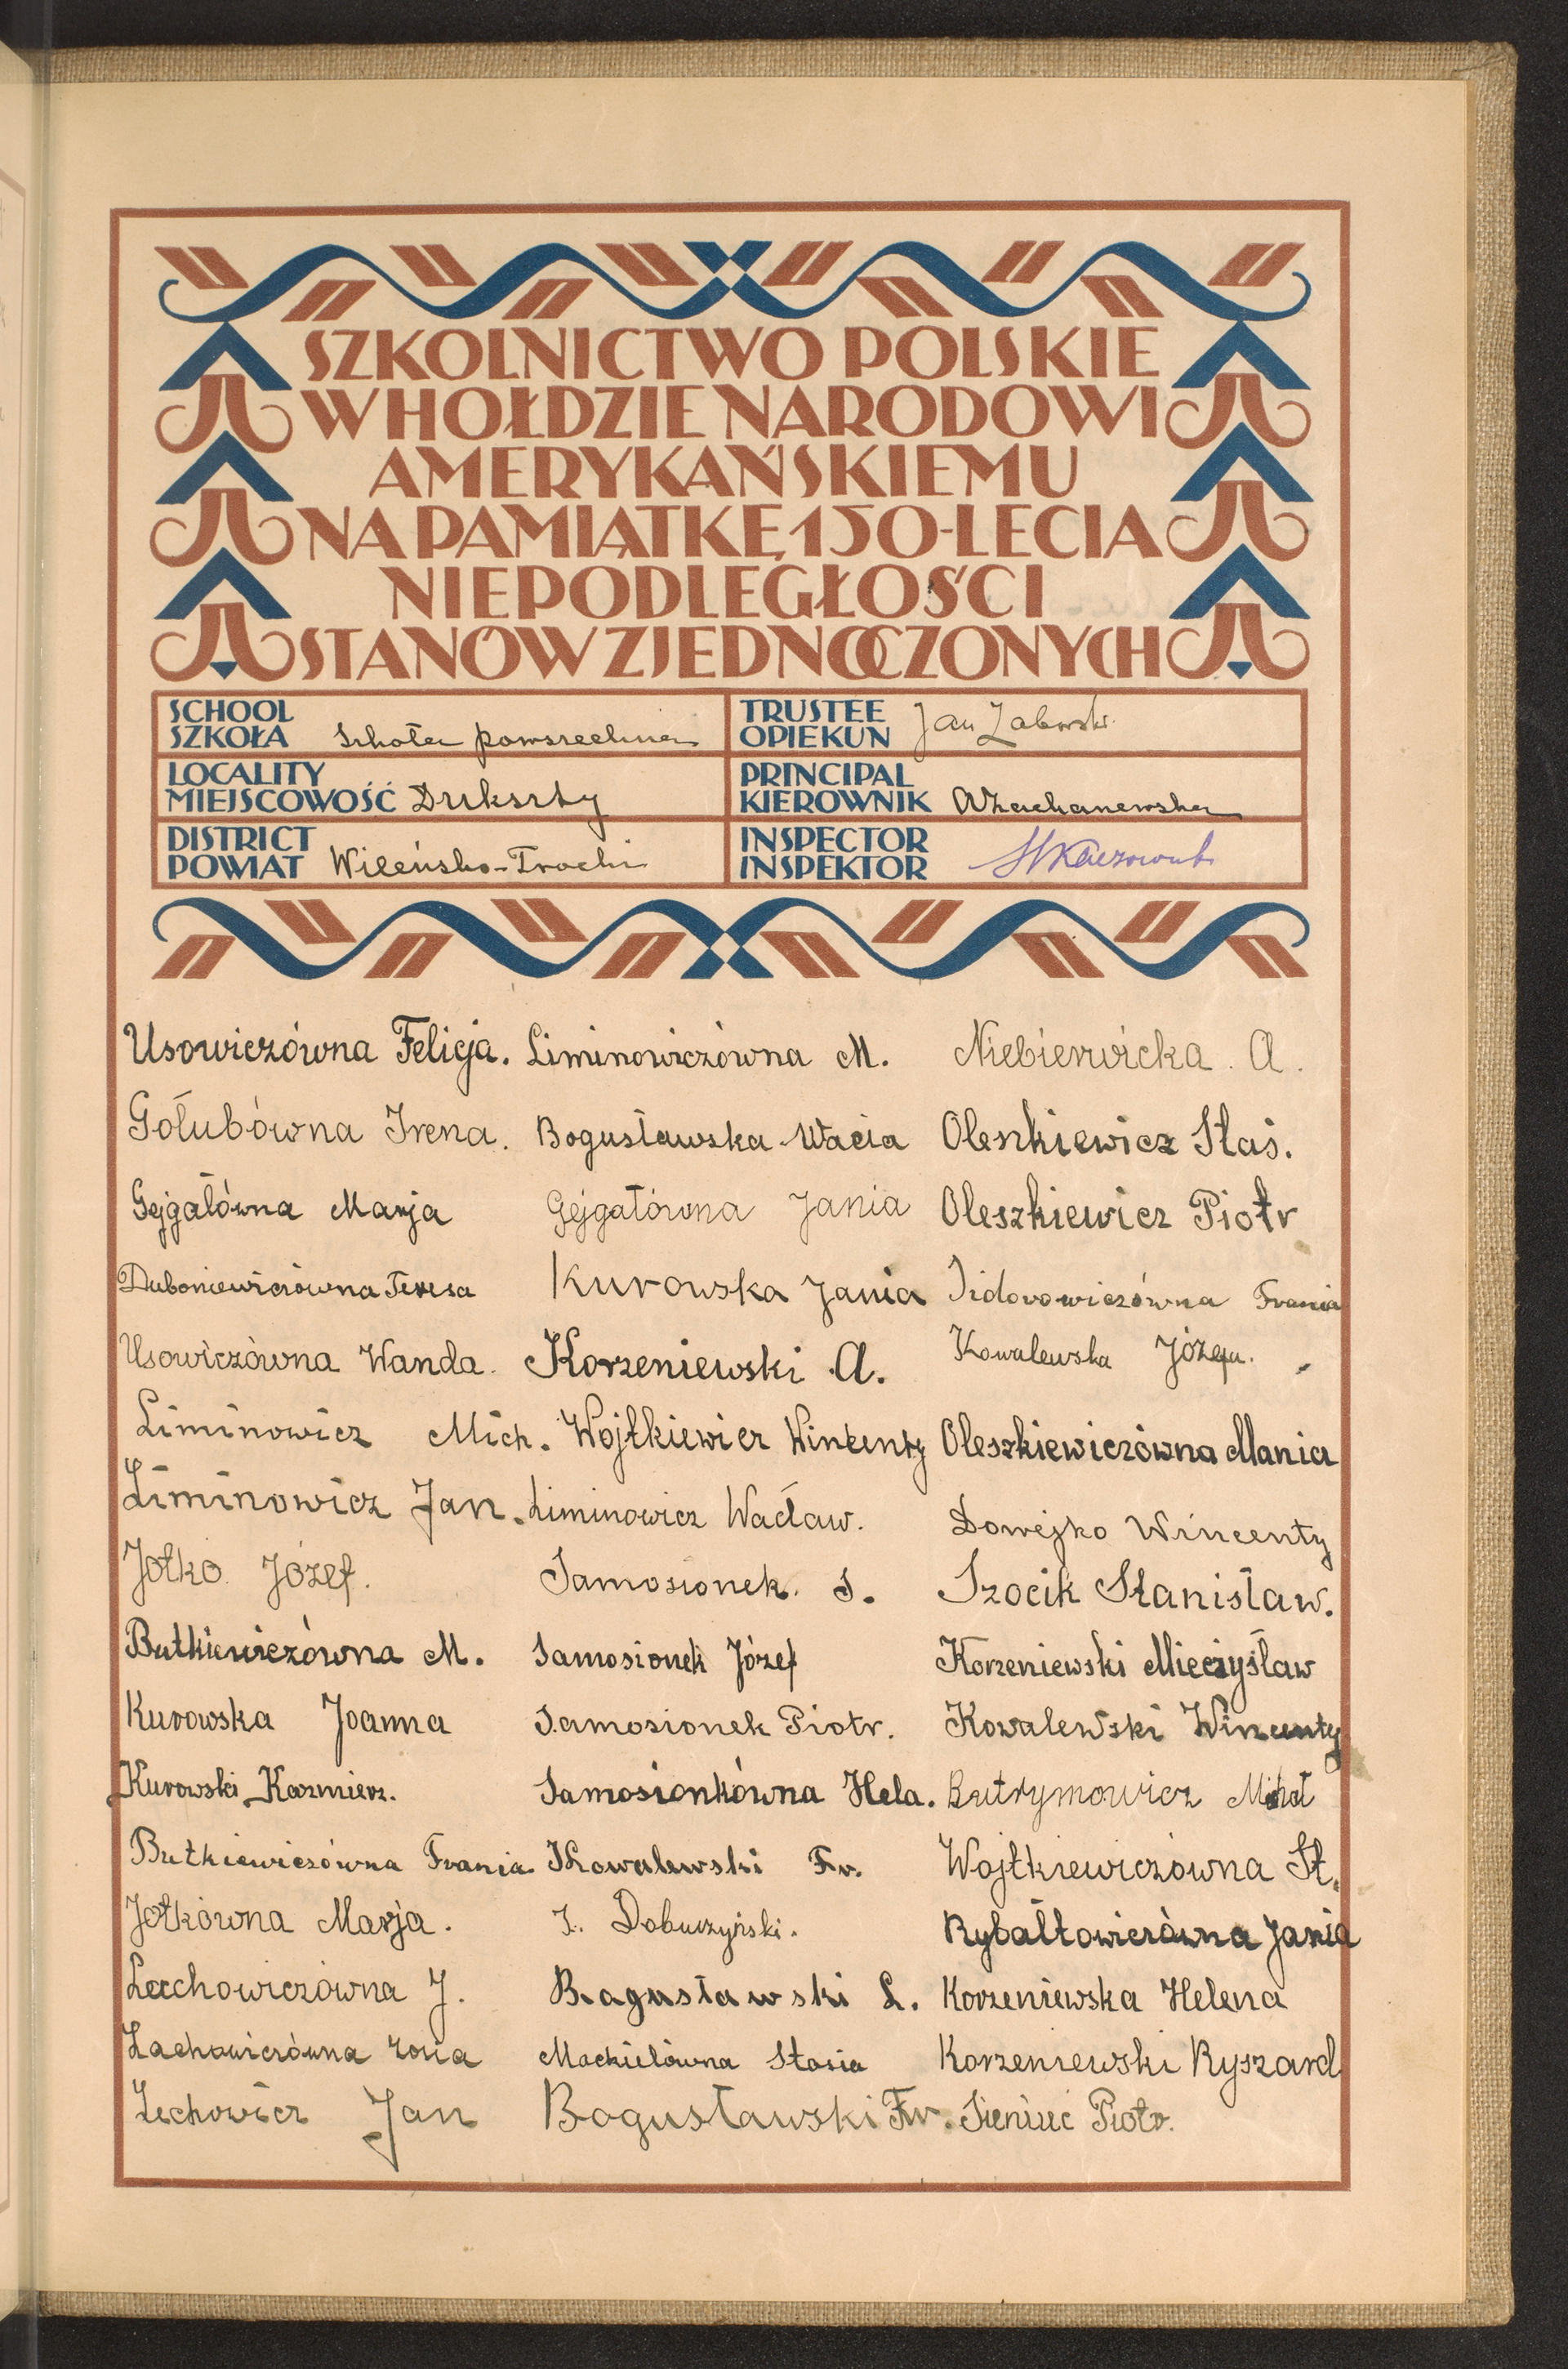 SZKOLNICTWO POLSKIE
W HOŁDZIE NARODOWI
AMERYKAŃSKIEMU
NA PAMIĄTKĘ 150-LECIA
NIEPODLEGŁOŚCI
STANÓW ZJEDNOCZONYCH
SCHOOL
SZKOŁA Szkoła powszechna
TRUSTEE
OPIEKUN Jan
LOCALITY
MIEJSCOWOŚĆ Dukszty
PRINCIPAL
KIEROWNIK
DISTRICT
POWIAT Wileńsko-Trocki
INSPECTOR
INSPEKTOR
Usowiczówna Felicja.
Gołubówna Irena.
Gejgałówna Marja
Duboniewiczówna Teresa
Usowiczówna Wanda.
Liminowicz Mich.
Liminowicz Jan.
Jotko Józef.
Butkiewiczówna M.
Kurowska Joanna
Kurowski Kazmierz.
Butkiewiczówna Frania
Jotkówna Marja.
Lechowiczówna J.
Lachowiczówna Zosia
Lechowicz Jan
Liminowiczówna M.
Bogusławska Wacia
Gejgałówna Jania
Kurowska Jania
Korzeniewski A.
Wojtkiewicz Wincenty
Liminowicz Wacław.
Samosionek. S.
Samosionek Józef
Samosionek Piotr.
Samosionkówna Hela.
Kowalewski Fr.
J. Dobuczyński.
Bogusławski L.
Mackielówna Stasia
Bogusławski Fr.
Niebierwicka. A.
Oleszkiewicz Staś.
Oleszkiewicz Piotr
Izidorowiczówna Frania
Kowalewska Józefa.
Oleszkiewiczówna Mania
Dowejko Wincenty
Szocik Stanisław.
Korzeniewski Mieczysław
Kowalewski Wincenty
Butrymowicz Michał
Wojtkiewiczówna St.
Rybałtowiczówna Jania
Korzeniewska Helena
Korzeniewski Ryszard
Sieniuć Piotr.